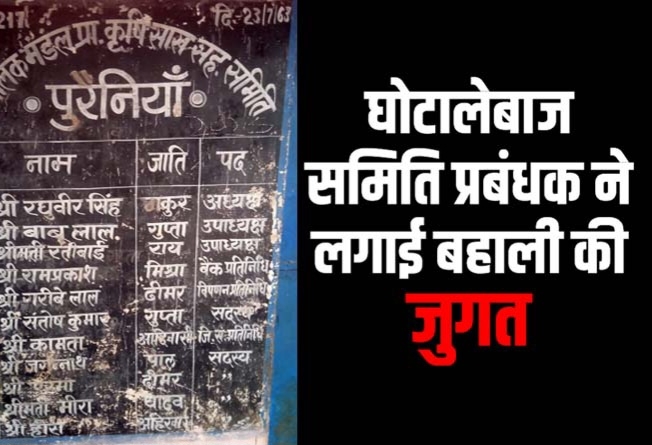 217/
दि. 23/7/63
मंडल प्रा. कृषि साख सह. समिति
पुरैनियाँ
नाम जाति पद
श्री रघुवीर सिंह ठाकुर अध्यक्ष
श्री बाबू लाल. गुप्ता उपाध्यक्ष
श्रीमती रतीबाई राय उपाध्यक्ष
श्री रामप्रकाश मिश्रा बैंक प्रतिनिधि
श्री गरीबे लाल ढीमर विपणन प्रतिनिधि
श्री संतोष कुमार गुप्ता सदस्य
श्री कामता जि. स. प्रतिनिधि
श्री जगन्नाथ पाल सदस्य
श्री ढीमर "
श्रीमती मीरा यादव "
श्री हीरा
घोटालेबाज
समिति प्रबंधक ने
लगाई बहाली की
जुगत